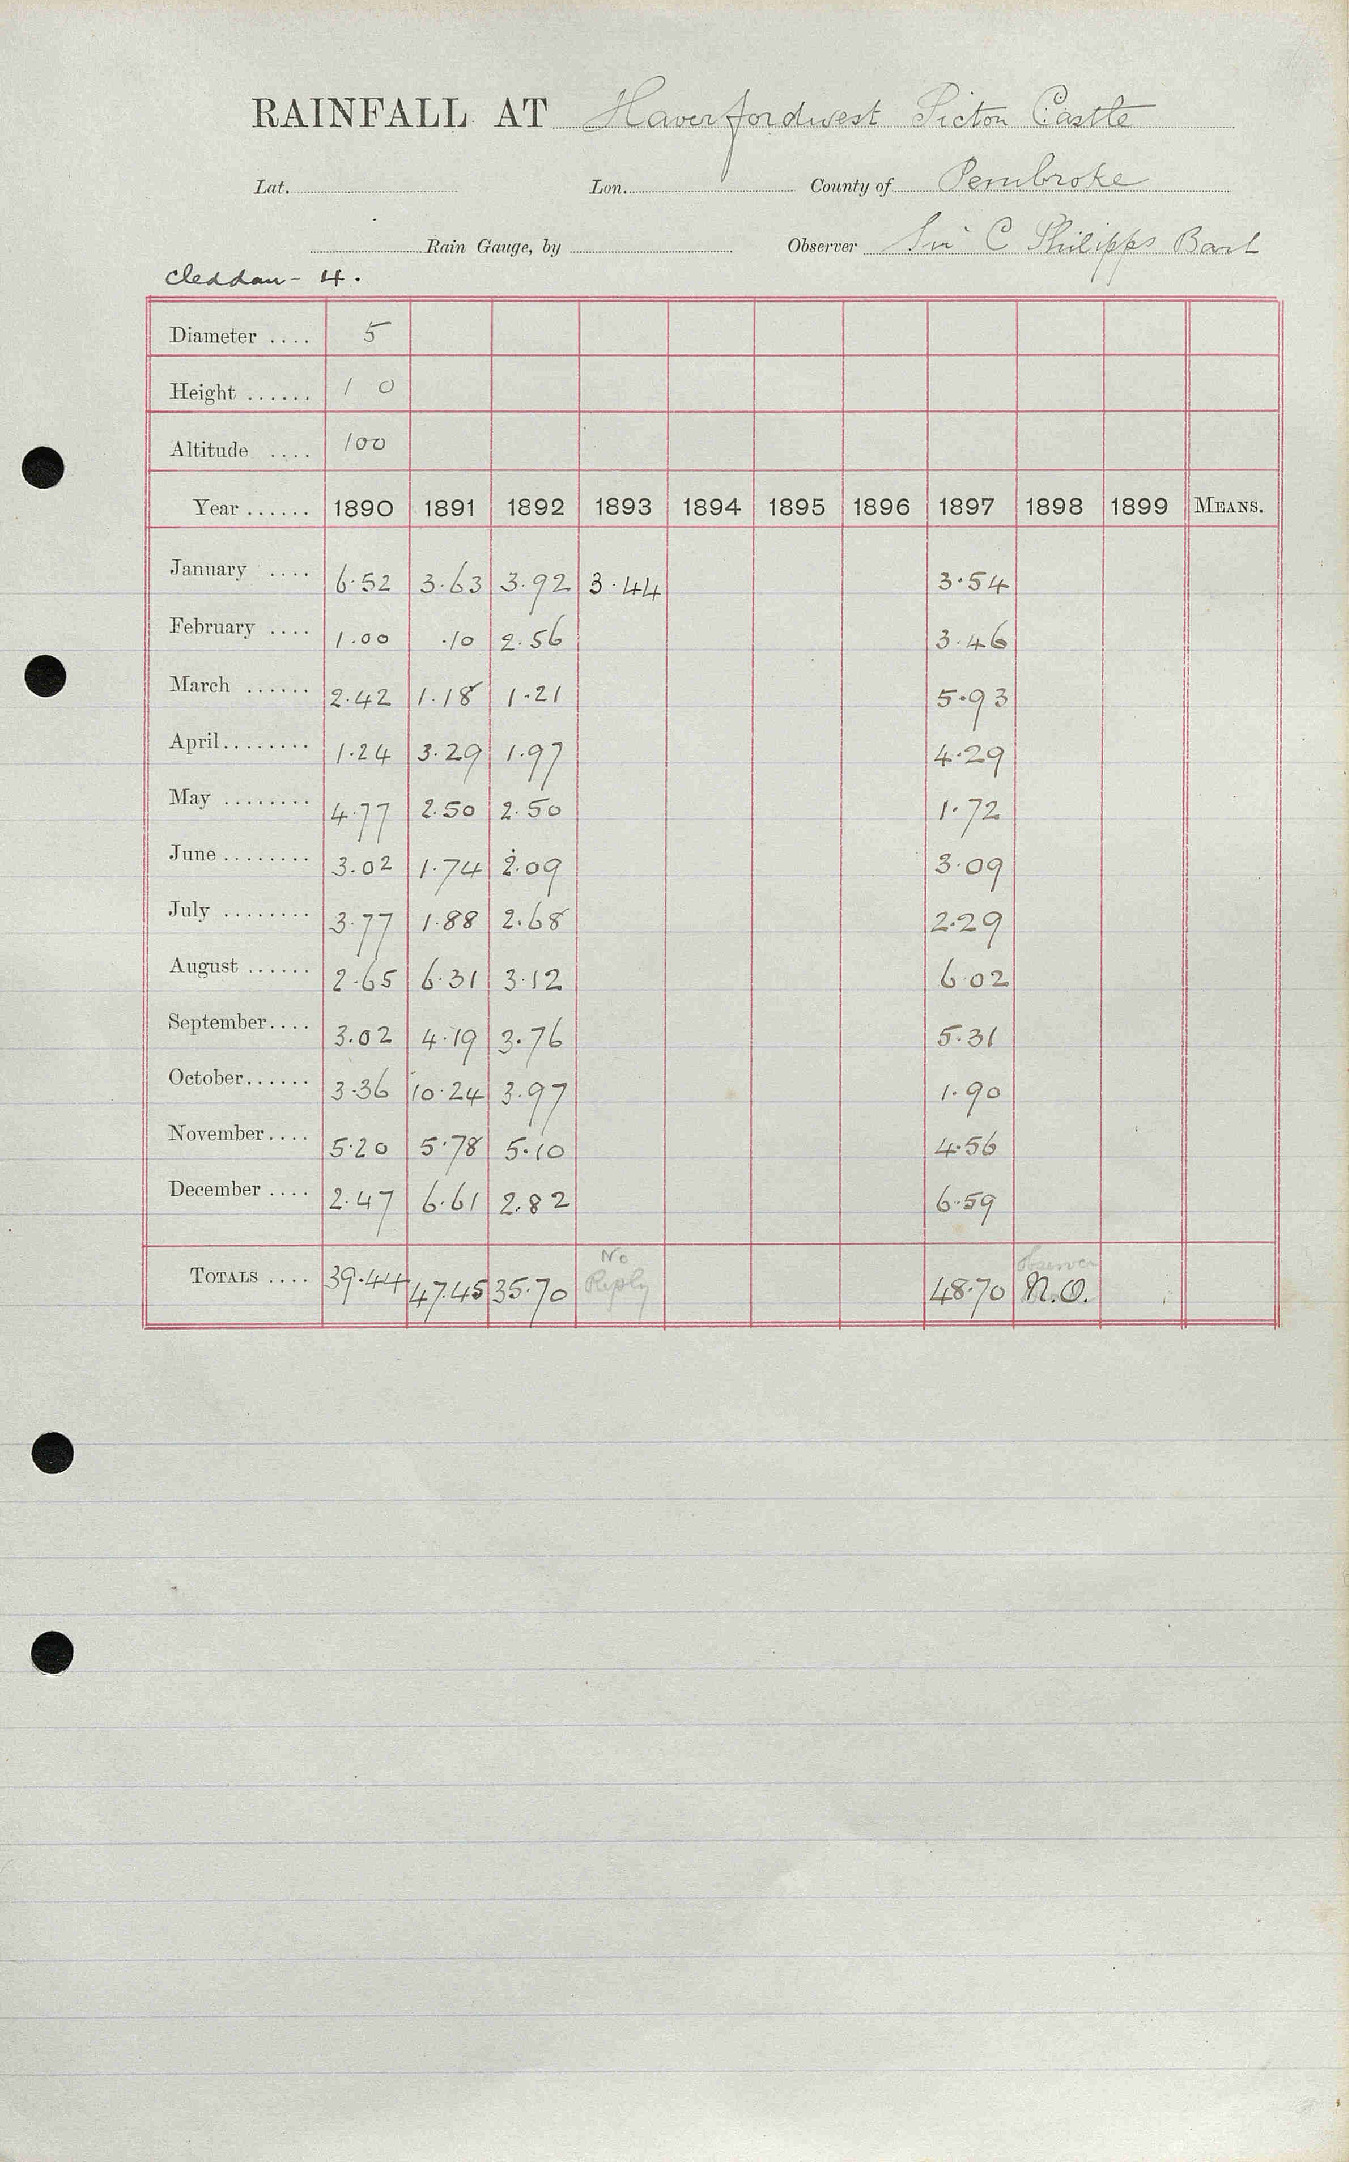 RAINFALL AT Haverfordwest Picton Castle
Lat. Lon. County of Pembroke
Rain Gauge, by Observer Sir C Philipps Bart
Cleddau - 4.
Diameter .... 5
Height ...... 1 0
Altitude .... 100
Year ...... 1890 1891 1892 1893 1894 1895 1896 1897 1898 1899 MEANS.
January .... 6.52 3.63 3.92 3.44 3.54
February .... 1.00 .10 2.56 3.46
March ...... 2.42 1.18 1.21 5.93
April........ 1.24 3.29 1.97 4.29
May ........ 4.77 2.50 2.50 1.72
June ........ 3.02 1.74 2.09 3.09
July ........ 3.77 1.88 2.68 2.29
August ...... 2.65 6.31 3.12 6.02
September.... 3.02 4.19 3.76 5.31
October...... 3.36 10.24 3.97 1.90
November.... 5.20 5.78 5.10 4.56
December .... 2.47 6.61 2.82 6.59
No Observer
TOTALS .... 39.44 47.45 35.70 Reply 48.70 N.O.